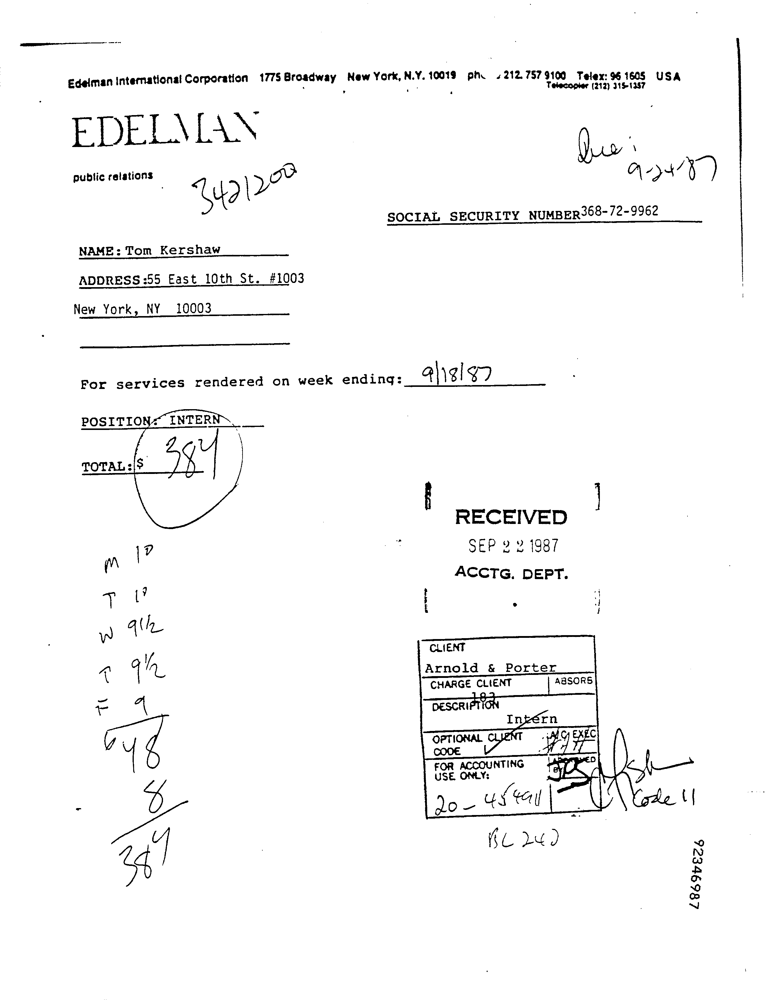 Edelman International Corporation 1775 Broadway New York, N.Y. 10019 212 757 9100 Telex: 96 1605 USA
Telecopier (212) 315-1357
EDELMAN
public relations
3421200
Due:
9-24-87
SOCIAL SECURITY NUMBER 368-72-9962
NAME: Tom Kershaw
ADDRESS: 55 East 10th St. #1003
New York, NY 10003
For services rendered on week ending: 9/18/87
POSITION: INTERN
TOTAL: $ 384
RECEIVED
SEP 22 1987
ACCTG. DEPT.
M 10
T 10
W 9 1/2
T 9 1/2
F 9
48
8
384
CLIENT
Arnold & Porter
CHARGE CLIENT ABSORB
183
DESCRIPTION
Intern
OPTIONAL CLIENT A/C EXEC
CODE
FOR ACCOUNTING APPROVED
USE ONLY: BY
20-45491
Code 11
BL 242
92346987